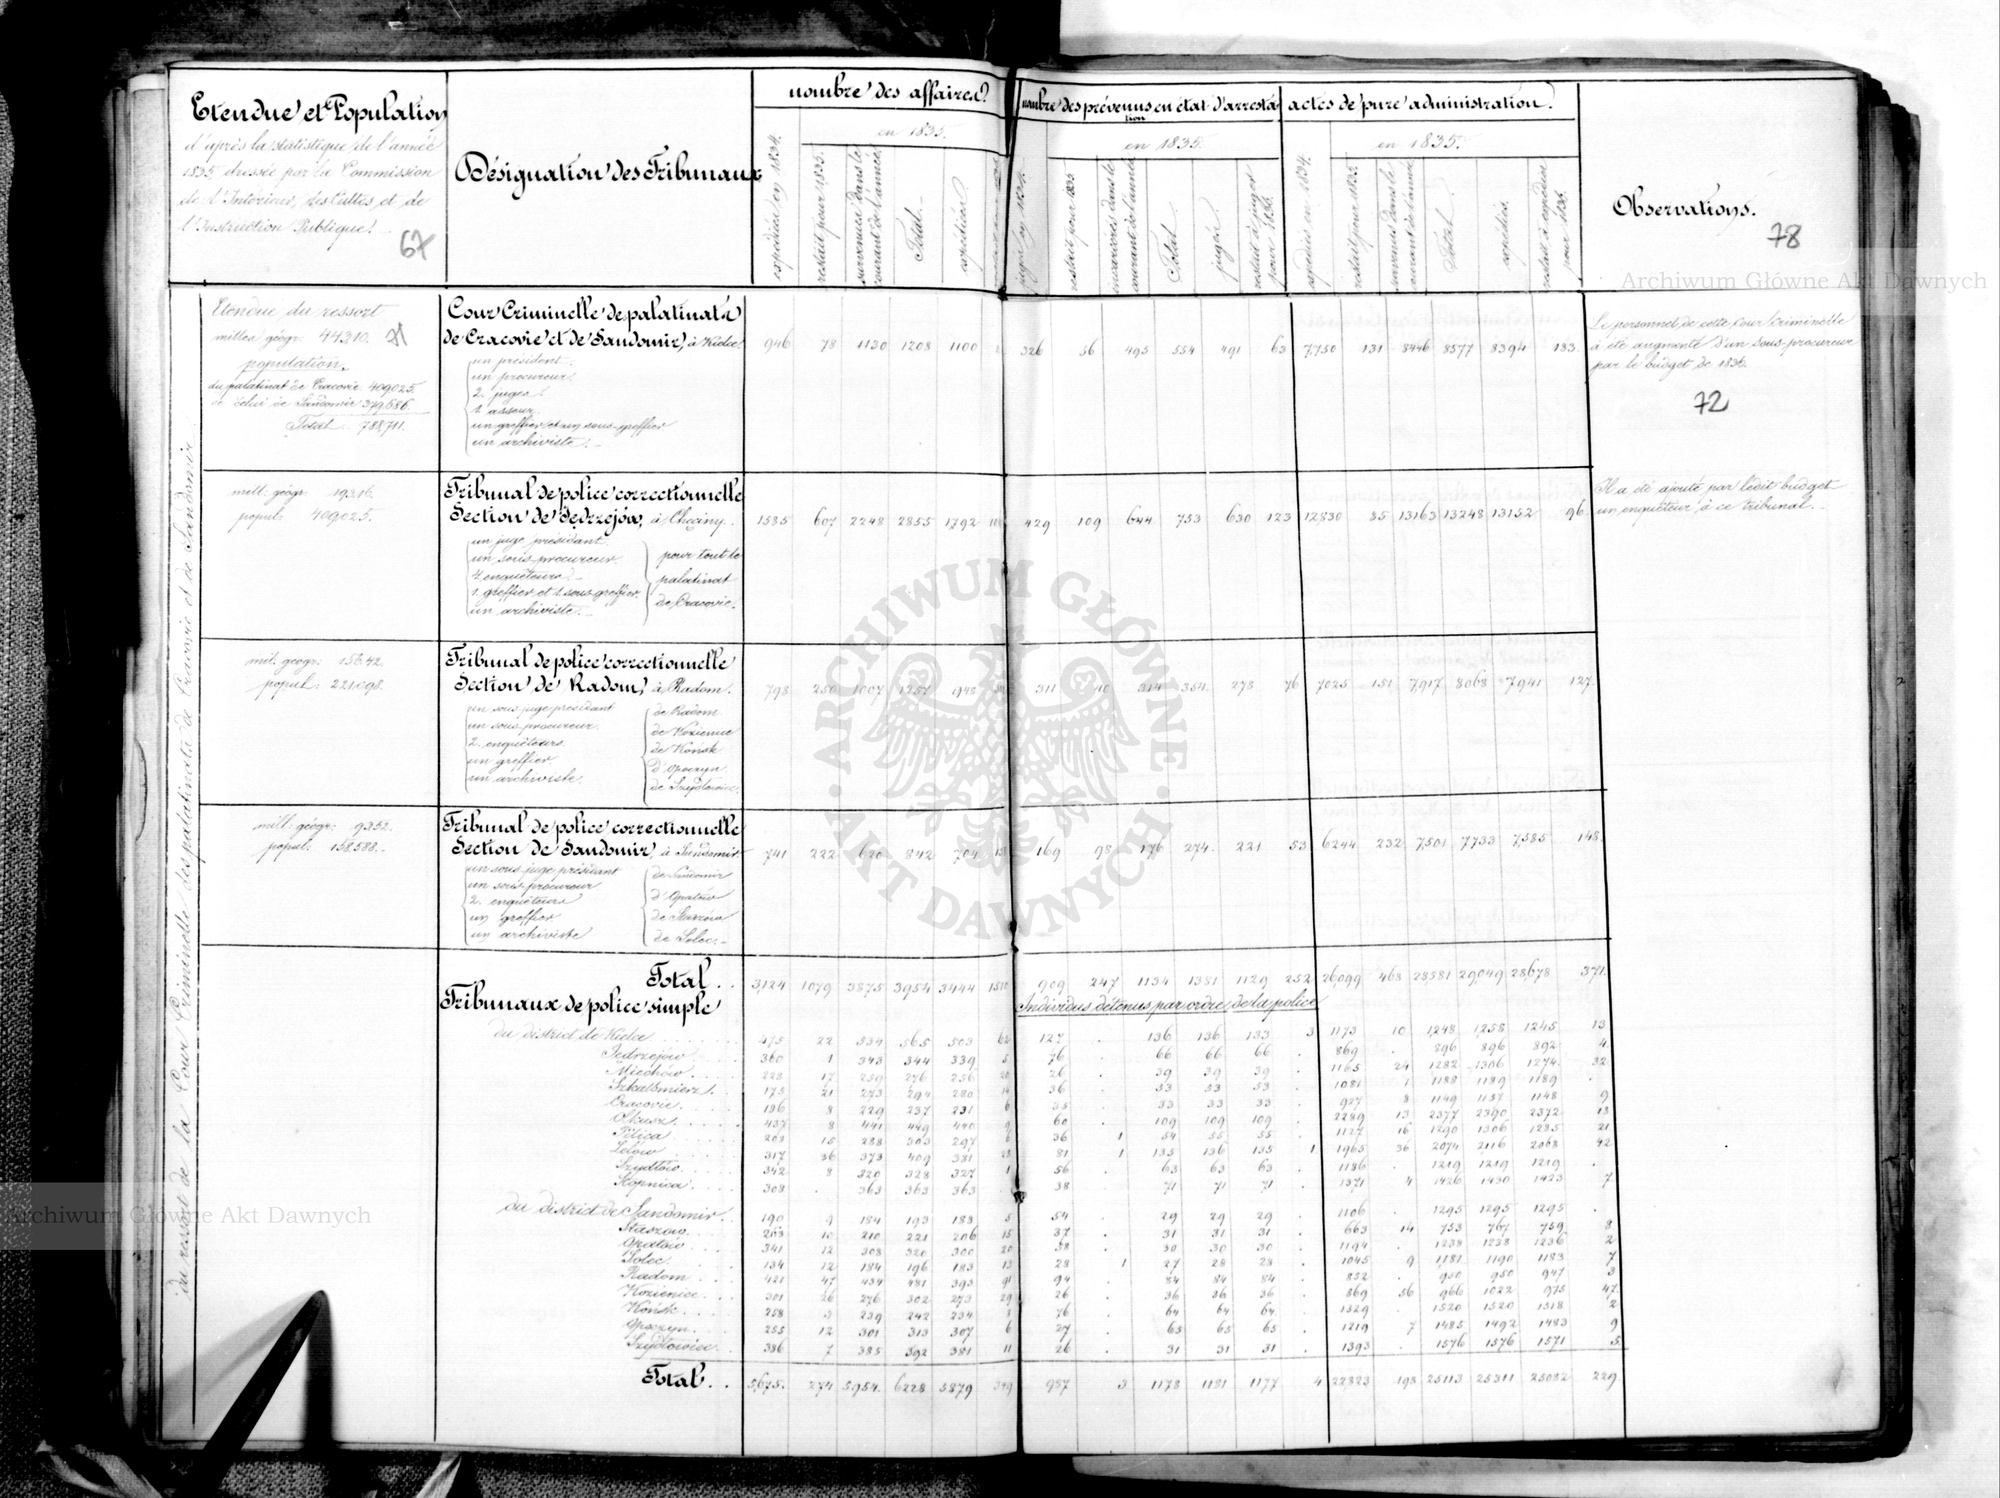 Etendue et Population
d'après la statistique de l'année
1835 dressée par la Commission
de l'Intérieur, des Cultes et de
l'Instruction Publique.
67
Désignation des Tribunaux
nombre des affaires
expédiées en 1834.
en 1835.
restait pour 1835.
survenues dans le courant de l'année
Total
expédiées
nombre des prévenus en état d'arrestation
en 1835.
restait pour 1835
courant de l'année
Total
jugés
restait à juger pour 1836.
actes de pure administration
expédiés en 1834.
en 1835.
restait pour 1835.
survenus dans le courant de l'année
Total
expédiés
restait à expédier pour 1836.
Observations.
78
du ressort de la Cour Criminelle des palatinats de Cracovie et de Sandomir
Etendue du ressort
milles géogr. 44310.
population
du palatinat de Cracovie 409025.
de celui de Sandomir 379,686.
Total 788711.
Cour Criminelle de palatinats
de Cracovie et de Sandomir, à Kielce.
un président
un procureur
2. juges
1. assesseur
un greffier et un sous-greffier
un archiviste
946 78 1130 1208 1100 326 56 495 554 491 63 7,750 131 8446 8577 8394 183.
Le personnel de cette Cour Criminelle
a été augmenté d'un sous-procureur
par le budget de 1836.
72
mill: géogr: 19316.
popul: 409025.
Tribunal de police correctionnelle
Section de Jedrzejów, à Chęciny
un juge président
un sous-procureur
4 enquêteurs
1. greffier et 1. sous-greffier
un archiviste
pour tout le
palatinat
de Cracovie.
1585 607 2248 2855 1792 429 109 644 753 630 123 12830 85 13163 13248 13152 96
Il a été ajouté par ledit budget
un enquêteur à ce tribunal.
mil. géogr. 15642.
popul: 221098.
Tribunal de police correctionnelle
Section de Radom, à Radom.
un sous juge président
un sous-procureur
2. enquêteurs
un greffier
un archiviste.
de Radom
de Kozienice
de Końsk
d'Opoczyn
de Szydłowiec
798 250 1007 1257 948 311 40 314 354 278 76 7025 151 7,917 8068 7941 127.
mill: géogr: 9352.
popul: 158588.
Tribunal de police correctionnelle
Section de Sandomir, à Sandomir
un sous juge président
un sous-procureur
2. enquêteurs
un greffier
un archiviste
de Sandomir
d'Opatów
de Staszów
de Solec
741 222 620 842 704 138 169 98 176 274 221 53 6244 232 7501 7733 7,585 148.
Total 3,124 1079 3875 3954 3444 1510 909 247 1134 1381 1129 252 26,099 468 28581 29,049 28,678 371.
Tribunaux de police simple
Individus détenus par ordre de la police
du district de Kielce 475 22 534 565 503 62 127 136 136 133 3 1173 10 1248 1,258 1245 13
Jędrzejów 360 1 343 344 339 5 76 66 66 66 869 896 896 892 4
Miechów 223 17 259 276 256 20 26 39 39 39 1165 24 1282 1306 1274 32
Szkalbmierz 175 21 273 294 280 14 36 53 53 53 1081 1 1188 1189 1189
Cracovie 196 8 229 237 231 6 33 33 33 33 927 8 1149 1157 1148 9
Olkusz 437 8 441 449 440 9 60 109 109 109 2289 13 2377 2390 2372 18
Pilica 203 15 288 303 297 6 36 1 54 55 55 1127 16 1290 1306 1285 21
Lelów 317 36 373 409 381 28 81 1 135 136 135 1 1965 36 2074 2116 2068 42
Szydłów 342 8 320 328 327 1 56 63 63 63 1186 1219 1219 1219
Stopnica 308 363 363 363 38 71 71 71 1371 4 1426 1430 1423 7
du district de Sandomir 190 9 184 193 188 5 54 29 29 29 1106 1295 1295 1295
Staszów 203 10 210 221 206 15 37 31 31 31 663 14 753 767 759 8
Opatów 341 12 308 320 300 20 38 30 30 30 1194 1238 1238 1236 2
Solec 134 12 184 196 183 13 28 1 27 28 28 1045 9 1181 1190 1183 7
Radom 421 47 434 481 393 91 94 84 84 84 852 950 950 947 3
Kozienice 301 26 276 302 273 29 26 36 36 36 869 56 966 1022 975 47
Końsk 258 3 239 242 234 8 76 64 64 64 1329 1520 1520 1518 2
Opoczyn 255 12 301 313 307 6 27 65 65 65 1219 7 1485 1492 1483 9
Szydłowiec 386 7 385 392 381 11 26 31 31 31 1393 1576 1576 1571 5
Total 5,675. 274 5,954. 6228 5879 349 957 3 1178 1181 1177 4 22823 198 25113 25311 25082 229
Archiwum Główne Akt Dawnych
Archiwum Główne Akt Dawnych
ARCHIWUM GŁÓWNE AKT DAWNYCH